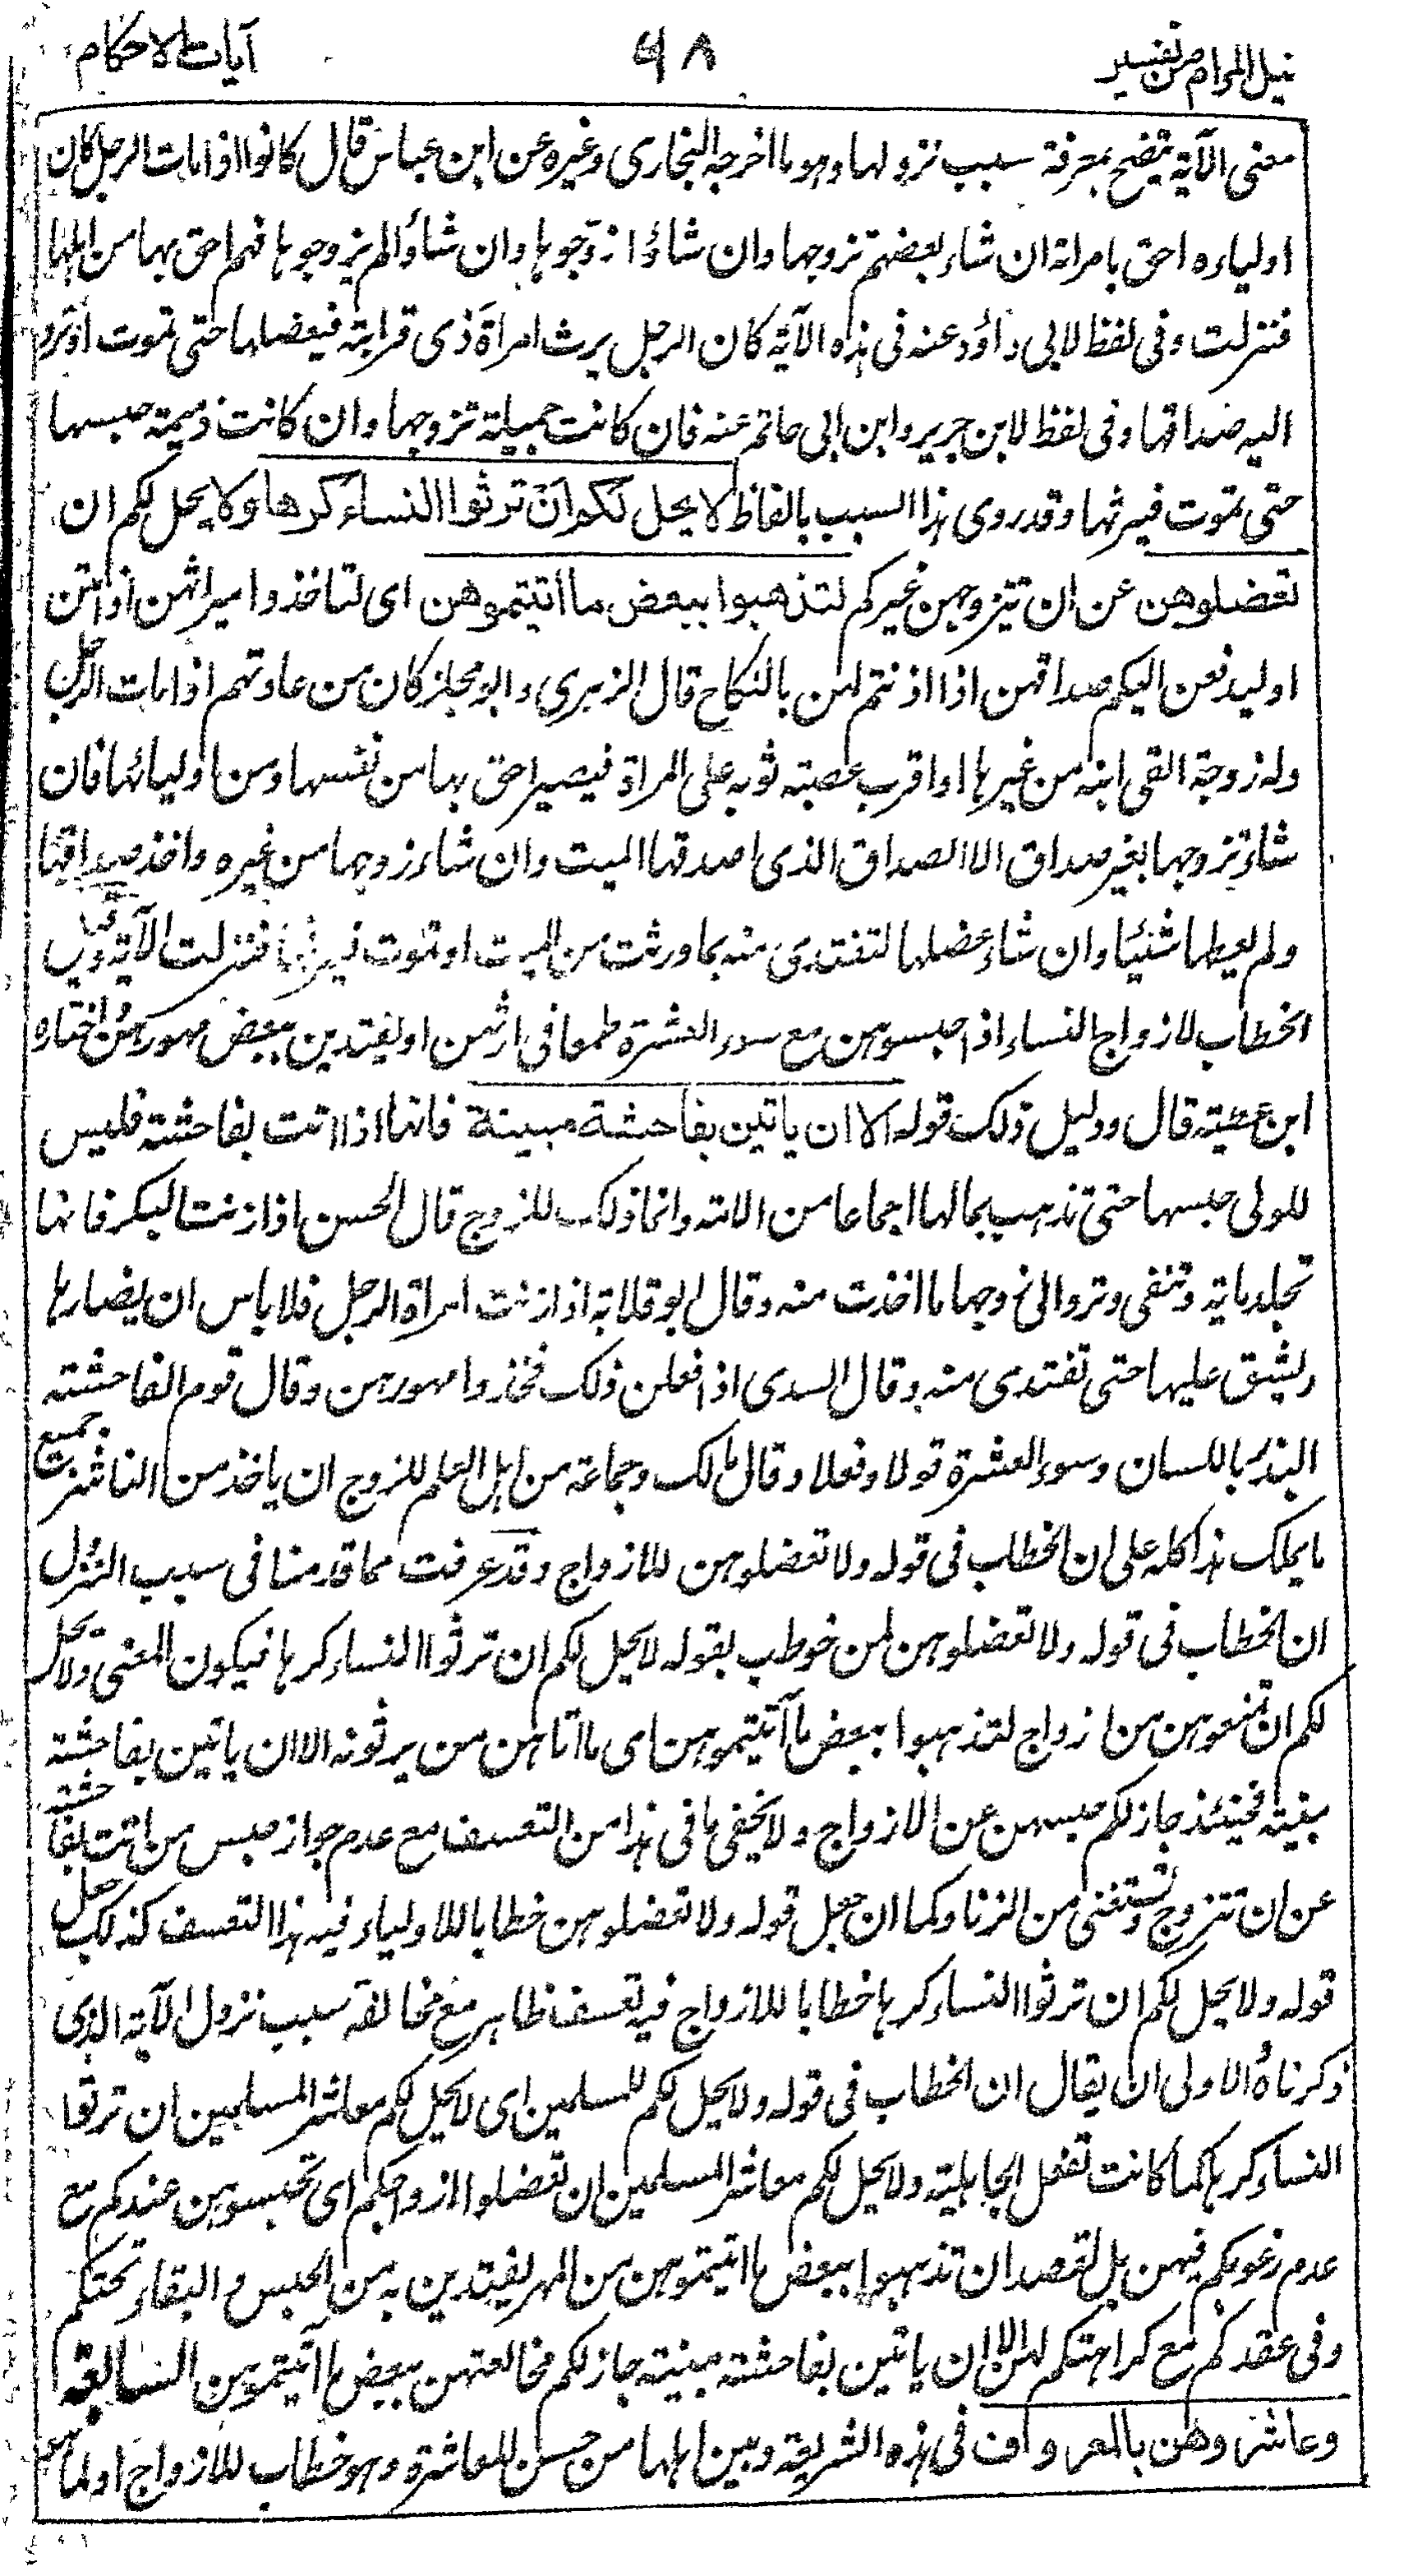 نيل المرام من تفسير ٦٨ آيات الاحكام
معنى الآية يتضح بمعرفة سبب نزولها وهو ما اخرجه البخاري وغيره عن ابن عباس قال كانوا اذا مات الرجل كان
اولياءه احق بامراته ان شاء بعضهم تزوجها وان شاؤا زوجوها وان شاؤا لم يزوجوها فهم احق بها من اهلها
فنزلت وفي لفظ لابي داؤد عنه في هذه الآية كان الرجل يرث امراة ذي قرابته فيعضلها حتى تموت او ترد
اليه صداقها وفي لفظ لابن جرير وابن ابي حاتم عنه فان كانت جميلة تزوجها وان كانت ذميمة حبسها
حتى تموت فيرثها وقد روي هذا السبب بالفاظ لا يحل لكم ان ترثوا النساء كرها ولا يحل لكم ان
تعضلوهن عن ان يتزوجهن غيركم لتذهبوا ببعض ما اتيتموهن اى لتاخذوا ميراثهن اذا متن
او ليدفعن اليكم صداقهن اذا اذنتم لهن بالنكاح قال الزهري وابو مجلز كان من عادتهم اذا مات الرجل
وله زوجة القى ابنه من غيرها او اقرب عصبته ثوبه على المراة فيصير احق بها من نفسها ومن اوليائها فان
شاء تزوجها بغير صداق الا الصداق الذي اصدقها الميت وان شاء زوجها من غيره واخذ صداقها
ولم يعطها شيئا وان شاء عضلها لتفتدى منه بما ورثت من الميت او تموت فيرثها فنزلت الآية وقيل
الخطاب لازواج النساء اذا حبسوهن مع سوء العشرة طمعا في ارثهن او يفتدين ببعض مهورهن واختاره
ابن عطية قال ودليل ذلك قوله الا ان ياتين بفاحشة مبينة فانها اذا اتت بفاحشة فليس
للولي حبسها حتى تذهب بمالها اجماعا من الامة وانما ذلك للزوج قال الحسن اذا زنت البكر فانها
تجلد ماية وتنفى وترد الى زوجها ما اخذت منه وقال ابو قلابة اذا زنت امراة الرجل فلا باس ان يضارها
ويشق عليها حتى تفتدى منه وقال السدى اذا فعلن ذلك فخذوا مهورهن وقال قوم الفاحشة
البذاء باللسان وسوء العشرة قولا وفعلا وقال مالك وجماعة من اهل العلم للزوج ان ياخذ من الناشز جميع
ما يملك هذا كله على ان الخطاب في قوله ولا تعضلوهن للازواج وقد عرفت مما قدمنا في سبب النزول
ان الخطاب في قوله ولا تعضلوهن لمن خوطب بقوله لا يحل لكم ان ترثوا النساء كرها فيكون المعنى ولا يحل
لكم ان تمنعوهن من الزواج لتذهبوا ببعض ما آتيتموهن اى ما اتاهن من يرثونه الا ان ياتين بفاحشة
مبينة فحينئذ جاز لكم حبسهن عن الازواج ولا يخفى ما في هذا من التعسف مع عدم جواز حبس من اتت بفاحشة
عن ان تتزوج وتستغنى من الزنا وكما ان جعل قوله ولا تعضلوهن خطابا للاولياء فيه هذا التعسف كذلك جعل
قوله ولا يحل لكم ان ترثوا النساء كرها خطابا للازواج فيه تعسف ظاهر مع مخالفة سبب نزول الآية الذي
ذكرناه والاولى ان يقال ان الخطاب في قوله ولا يحل لكم للمسلمين اى لا يحل لكم معاشر المسلمين ان ترثوا
النساء كرها كما كانت تفعل الجاهلية ولا يحل لكم معاشر المسلمين ان تعضلوا ازواجكم اى تحبسوهن عندكم مع
عدم رغوبكم فيهن بل لقصد ان تذهبوا ببعض ما اتيتموهن من المهر يفتدين به من الحبس والبقاء تحتكم
وفي عقدكم مع كراهتكم لهن الا ان ياتين بفاحشة مبينة جاز لكم مخالعتهن ببعض ما آتيتموهن السابعة
وعاشروهن بالمعروف في هذه الشريعة وبين اهلها من حسن المعاشرة وهو خطاب للازواج او لما